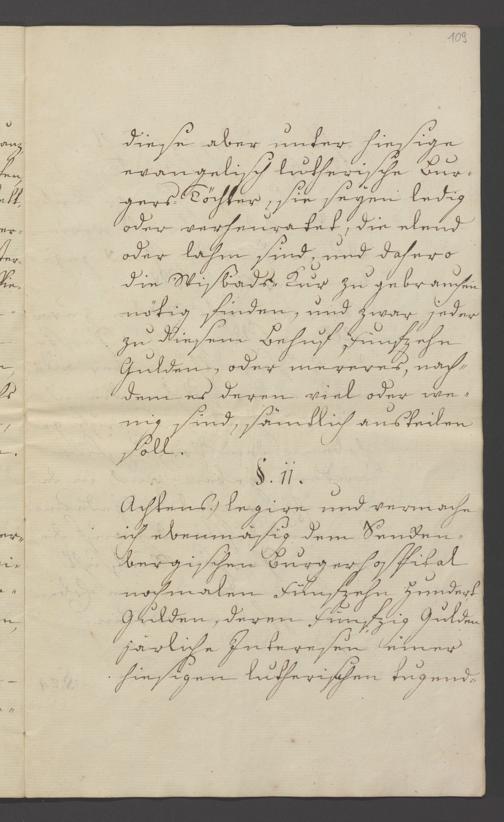 109
diese aber unter hiesige
evangelisch lutherische Bur-
gers-Töchter, sie seyen ledig
oder verheuratet, die elend
oder lahm sind, und dahero
die Wisbads-Kur zu gebrauchen
nötig finden, und zwar jeder
zu diesem Behuf funfzehn
Gulden, oder mereres, nach-
dem es deren viel oder we-
nig sind, sämtlich austeilen
soll.
§. 11.
Achtens) legire und vermache
ich ebenmäsig dem Senken-
bergischen Burgerhospital
nochmalen Funfzehn Hundert
Gulden, deren Funfzig Gulden
järliche Interesen einer
hiesigen lutherischen tugend-